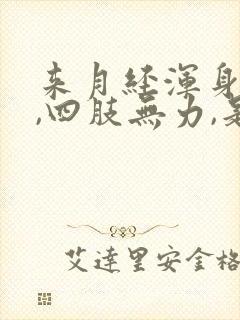 来月经渾身
,四肢無力,是
艾達里安金格